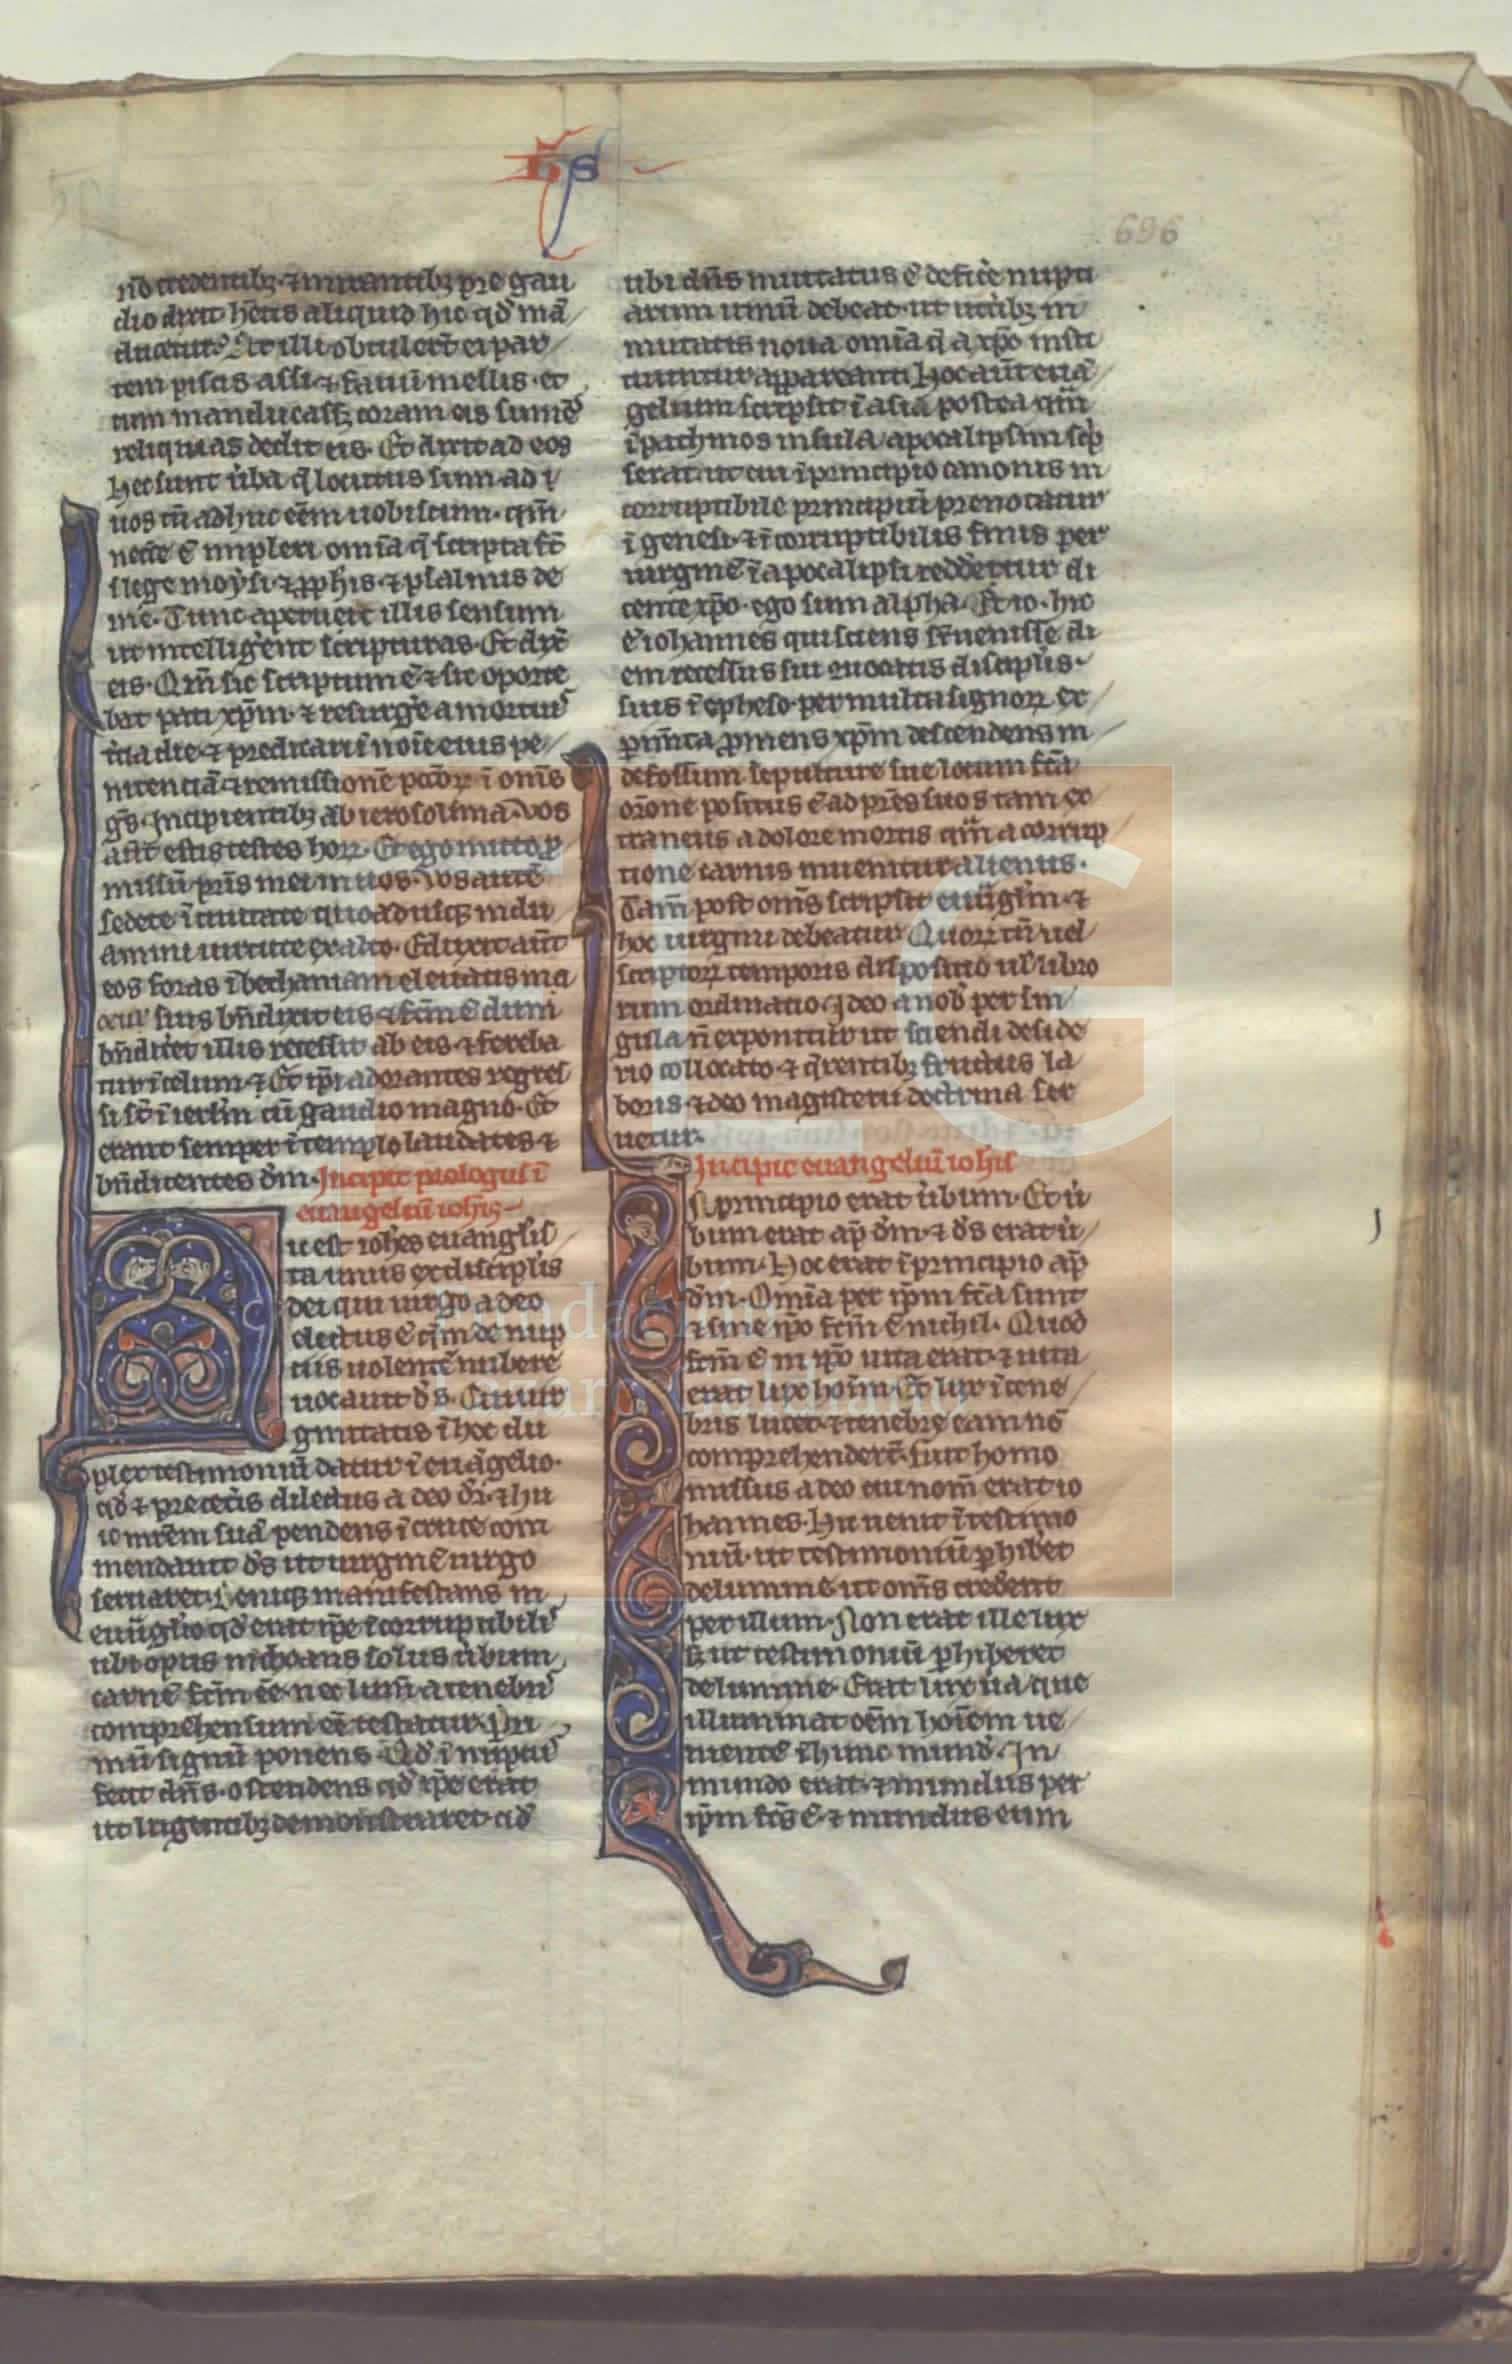 hẽs
696
nõ credentibȝ ⁊ mirantibȝ pre gau
dio dixit hẽtis aliquid hic qd̓ mã
ducetur. At illi obtulert̃ ei par
tem piscis assi ⁊ fauũ mellis. et
cum manducassȝ coram eis sumẽs
reliquias dedit eis. Et dixit ad eos
Hec sunt ůba q̃ locutus sum ad
uos cũ adhuc eẽm uobiscum. qm̃
necẽ ẽ impleri omĩa q̃ scripta st̃
ĩ lege moẏsi ⁊ ꝓphis ⁊ psalmis de
me. Tunc aperuit illis sensum
ut intelligẽnt scripturas. Et dix̃
eis. Qm̃ sic scriptum ẽ ⁊ sic oporte
bat pati xp̃m ⁊ resurgẽ a mortuis
t̃cia die ⁊ predicari ĩ noĩe eius pe
nitenciã ⁊ remissionẽ pccõꝝ ĩ omẽs
gẽs. Incipientibȝ ab ierosolima. Vos
aũt estis testes hoꝝ. Et ego mitto ꝓ
missũ pr̃is mei in uos. Vos autẽ
sedete ĩ ciuitate quoadusqȝ indu
amini uirtute ex alto. Eduxit aũt
eos foras ĩ bethaniam eleuatis ma
suis bñdixit eis ⁊ fcm̃ ẽ dum
bñdicet illis recessit ab eis ⁊ fereba
tur ĩ celum. ⁊ Et ip̃i adorantes regres
si st̃ ĩ ierl̃m cũ gaudio magno. Et
erant semper ĩ templo laudãtes ⁊
bñdicentes dm̃. Incipit prologus ĩ
euangeliũ iohis
Hic est ioh̃es euanglis
ta unus ex discipl̃is
dei qui uirgo a deo
electus ẽ qm̃ de nup
tiis uolentẽ nubere
uocauit ds̃. Cui uir
ginitatis ĩ hoc du
plex testimoniũ datur ĩ euãgelio.
qd̓ ⁊ pre cet̃is dilectus a deo dr̃ ⁊ hu
ic mr̃em suã pendens ĩ cruce com
mendauit ds̃ ut uirginẽ uirgo
seruaret. Deniqȝ manifestans in
euũglio qd̓ erat ip̃e ĩcorruptibilis
ůbi opus inchoans solus ůbum
carnẽ fcm̃ eẽ nec lumẽ a tenebris
comprehensum eẽ testatur. Pri
mũ signũ ponens. Qd̓ ĩ nuptiis
fecit dñs. ostendens qd̓ ip̃e erat
ut legentibȝ demonstraret. qd̓
ubi dñs inuitatus ẽ deficẽ nupti
arum uinũ debeat. ut uet̃ibȝ in
mutatis noua omĩa q̃ a xp̃o insti
tuuntur appareant. Hoc aũt euã
gelium scripsit ĩ asia postea qm̃
ĩ pathmos insula apocalipsim sc̃p
serat. ut cui ĩ principio canonis in
corruptibile principiũ prenotatur
ĩ genesi. ⁊ ĩcorruptibilis finis per
uirginẽ ĩ apocalipsi reddẽtur di
cente xp̃o. ego sum alpha. Et ω. hic
ẽ iohannes qui sciens suꝑuenisse di
em recessus sui. uocatis discipl̃is
suis ĩ epheso. per multa signoꝝ ex
perim̃ta ꝓmens xp̃m descendens in
defossum sepulture sue locum fcã
or̃one positus ẽ ad pr̃es suos tam ex
traneus a dolore mortis qm̃ a corrup
tione carnis inuenitur alienus.
Tam̃ post om̃s scripsit euũgl̃m. ⁊
hoc uirgini debeatur. Quoꝝ tñ uel
scriptoꝝ temporis dispositio ul̃ libro
rum ordinatio. Ideo a nob̃ per sin
gula ñ exponitur ut sciendi deside
rio collocato ⁊ q̃rentibȝ fructus la
boris ⁊ deo magisterii doctrina ser
uetur.
Incipit euangeliũ iohis
In principio erat ůbum. Et ů
bum erat ap̃ dm̃ ⁊ ds̃ erat ů
bum. Hoc erat ĩ principio ap̃
dm̃. Omĩa per ip̃m fcã sunt
⁊ sine ip̃o fcm̃ ẽ nichil. Quod
fcm̃ ẽ in ip̃o uita erat. ⁊ uita
erat lux hoĩm. Et lux ĩ tene
bris lucet. ⁊ tenebre eam nõ
comprehendert̃. fuit homo
missus a deo cui nom̃ erat io
hannes. Hic uenit ĩ testimo
niũ. ut testimoniũ ꝑhibẽt
de lumine ut om̃s credẽnt
per illum. Non erat ille lux
sȝ ut testimoniũ ꝑhiberet
de lumine. Erat lux ũa que
illuminat oẽm hoĩem ue
nientẽ ĩ hunc mund̃. In
mundo erat. ⁊ mundus per
ip̃m fcs̃ ẽ. ⁊ mundus eum
FLG
Fundación
Lázaro Galdiano